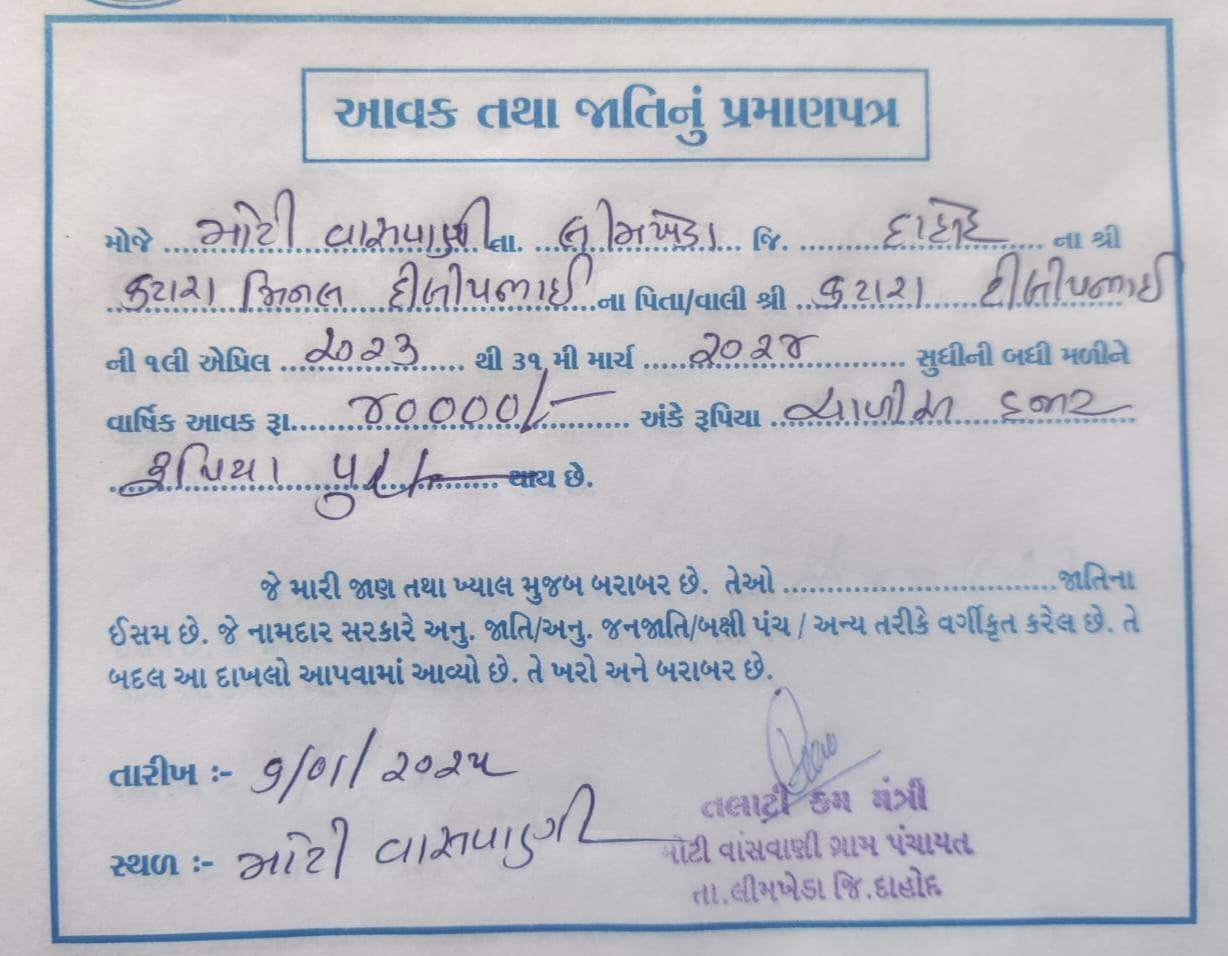 આવક તથા જાતિનું પ્રમાણપત્ર
મોજે ...મોટી વાસવાણી તા. ...લીમખેડા... જિ. ...દાહોદ... ના શ્રી
કટારા મિનલ દીલીપભાઈ ના પિતા/વાલી શ્રી ...કટારા દીલીપભાઈ
ની ૧લી એપ્રિલ ...૨૦૨૩... થી ૩૧ મી માર્ચ ...૨૦૨૪... સુધીની બધી મળીને
વાર્ષિક આવક રૂા. ...૪૦૦૦૦/-... અંકે રૂપિયા ...ચાળીસ હજાર
રૂપિયા પુરા થાય છે.
જે મારી જાણ તથા ખ્યાલ મુજબ બરાબર છે. તેઓ ..............................જાતિના
ઈસમ છે. જે નામદાર સરકારે અનુ. જાતિ/અનુ. જનજાતિ/બક્ષી પંચ / અન્ય તરીકે વર્ગીકૃત કરેલ છે. તે
બદલ આ દાખલો આપવામાં આવ્યો છે. તે ખરો અને બરાબર છે.
તારીખ :- ૭/૦૧/૨૦૨૫
તલાટી કમ મંત્રી
સ્થળ :- મોટી વાસવાણી
મોટી વાંસવાણી ગ્રામ પંચાયત
તા.લીમખેડા જિ.દાહોદ